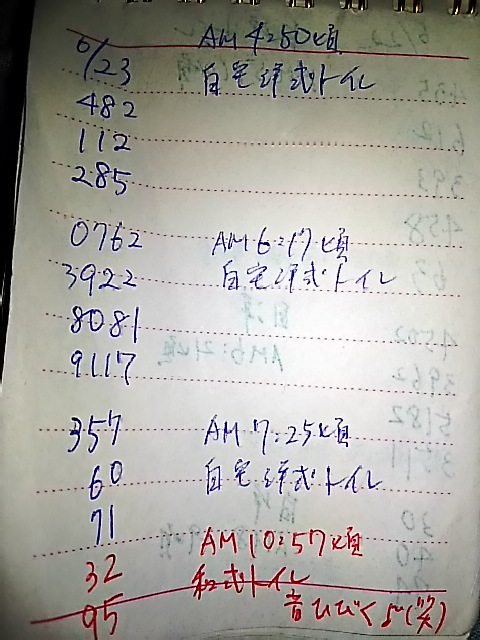 6/23 AM 4:50頃
自宅洋式トイレ
482
112
285
0762 AM 6:17頃
3922 自宅洋式トイレ
8081
9117
357 AM 7:25頃
60 自宅洋式トイレ
71
AM 10:57頃
32 和式トイレ
95 音ひびく(笑)